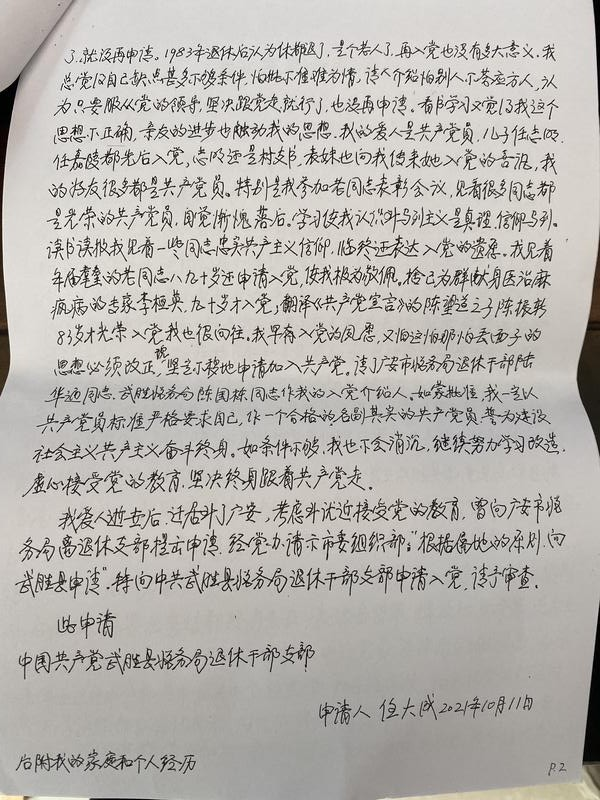 了,就没再申请。1983年退休后认为休都退了,是个老人了,再入党也没有多大意义。我
总觉得自己缺点甚多不够条件,怕批不准难为情,请人介绍怕别人不答应为人,认
为只要服从党的领导,坚决跟党走就行了,也没再申请。看书学习又觉得我这个
思想不正确,亲友的进步也触动我的思想。我的爱人是共产党员,儿子任志明、
任嘉陵都先后入党,志明还是村支书,表妹也向我传来她入党的喜讯,我
的好友很多都是共产党员。特别是我参加老同志表彰会议,见着很多同志都
是光荣的共产党员,自觉惭愧落后。学习使我认识马列主义是真理,信仰马列。
读书读报我见着一些同志忠实共产主义信仰,临终还表达入党的遗愿。我见着
年届耄耋的老同志八九十岁还申请入党,使我极为敬佩。捨己为群献身医治麻
疯病的专家李桓英,九十岁才入党;翻译《共产党宣言》的陈望道之子陈振新
83岁才光荣入党,我也很向往。我早有入党的夙愿,又怕这怕那怕丢面子的
思想必须改正,现坚定不移地申请加入共产党。请了广安市税务局退休干部陆
华通同志、武胜税务局陈国栋同志作我的入党介绍人。如蒙批准,我一定以
共产党员标准严格要求自己,作一个合格的名副其实的共产党员,誓为建设
社会主义共产主义奋斗终身。如条件不够,我也不会消沉,继续努力学习改造,
虚心接受党的教育,坚决终身跟着共产党走。
我爱人逝世后,迁居到了广安,考虑到就近接受党的教育,曾向广安市税
务局离退休支部提出申请,经党办请示市委组织部:“根据属地的原则,向
武胜县申请”。特向中共武胜县税务局退休干部支部申请入党,请予审查。
此申请
中国共产党武胜县税务局退休干部支部
申请人 任大成 2021年10月11日
后附我的家庭和个人经历
P.2